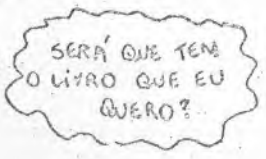 SERÁ QUE TEM
O LIVRO QUE EU
QUERO?